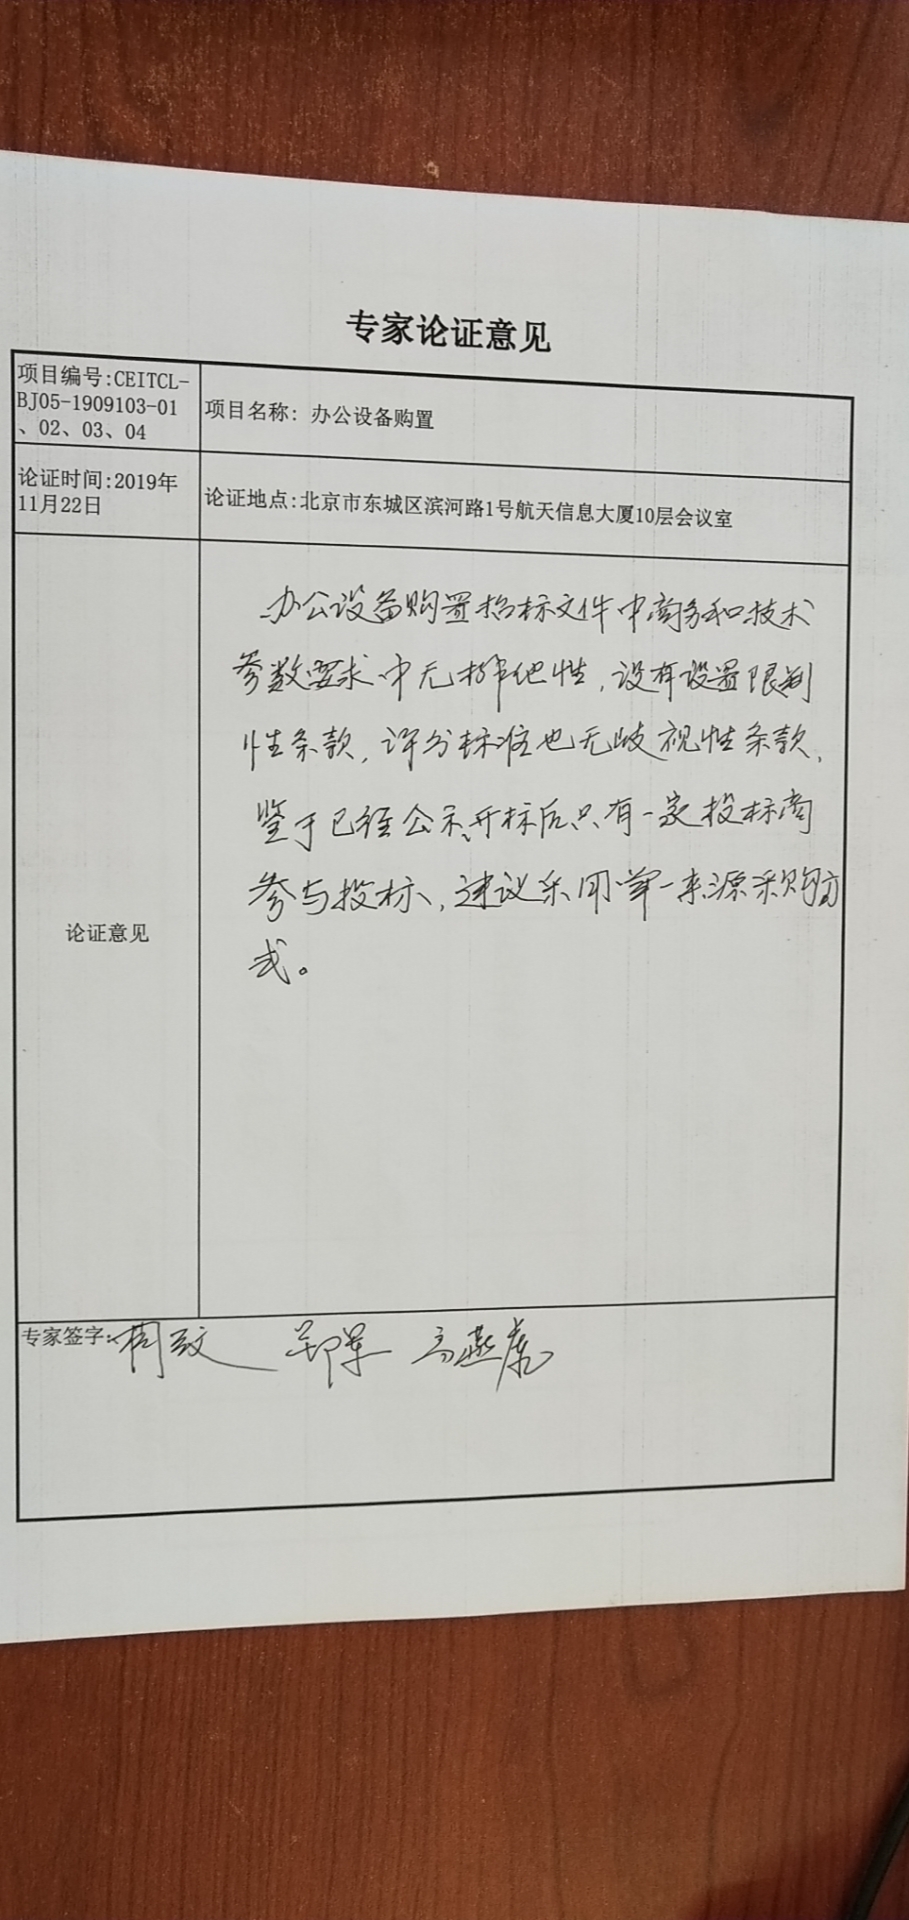 专家论证意见
项目编号:CEITCL-
BJ05-1909103-01
、02、03、04
项目名称: 办公设备购置
论证时间:2019年
11月22日
论证地点:北京市东城区滨河路1号航天信息大厦10层会议室
论证意见
办公设备购置招标文件中商务和技术
参数要求中无排他性,没有设置限制
性条款,评分标准也无歧视性条款,
鉴于已经公示、开标后只有一家投标商
参与投标,建议采用单一来源采购方
式。
专家签字: